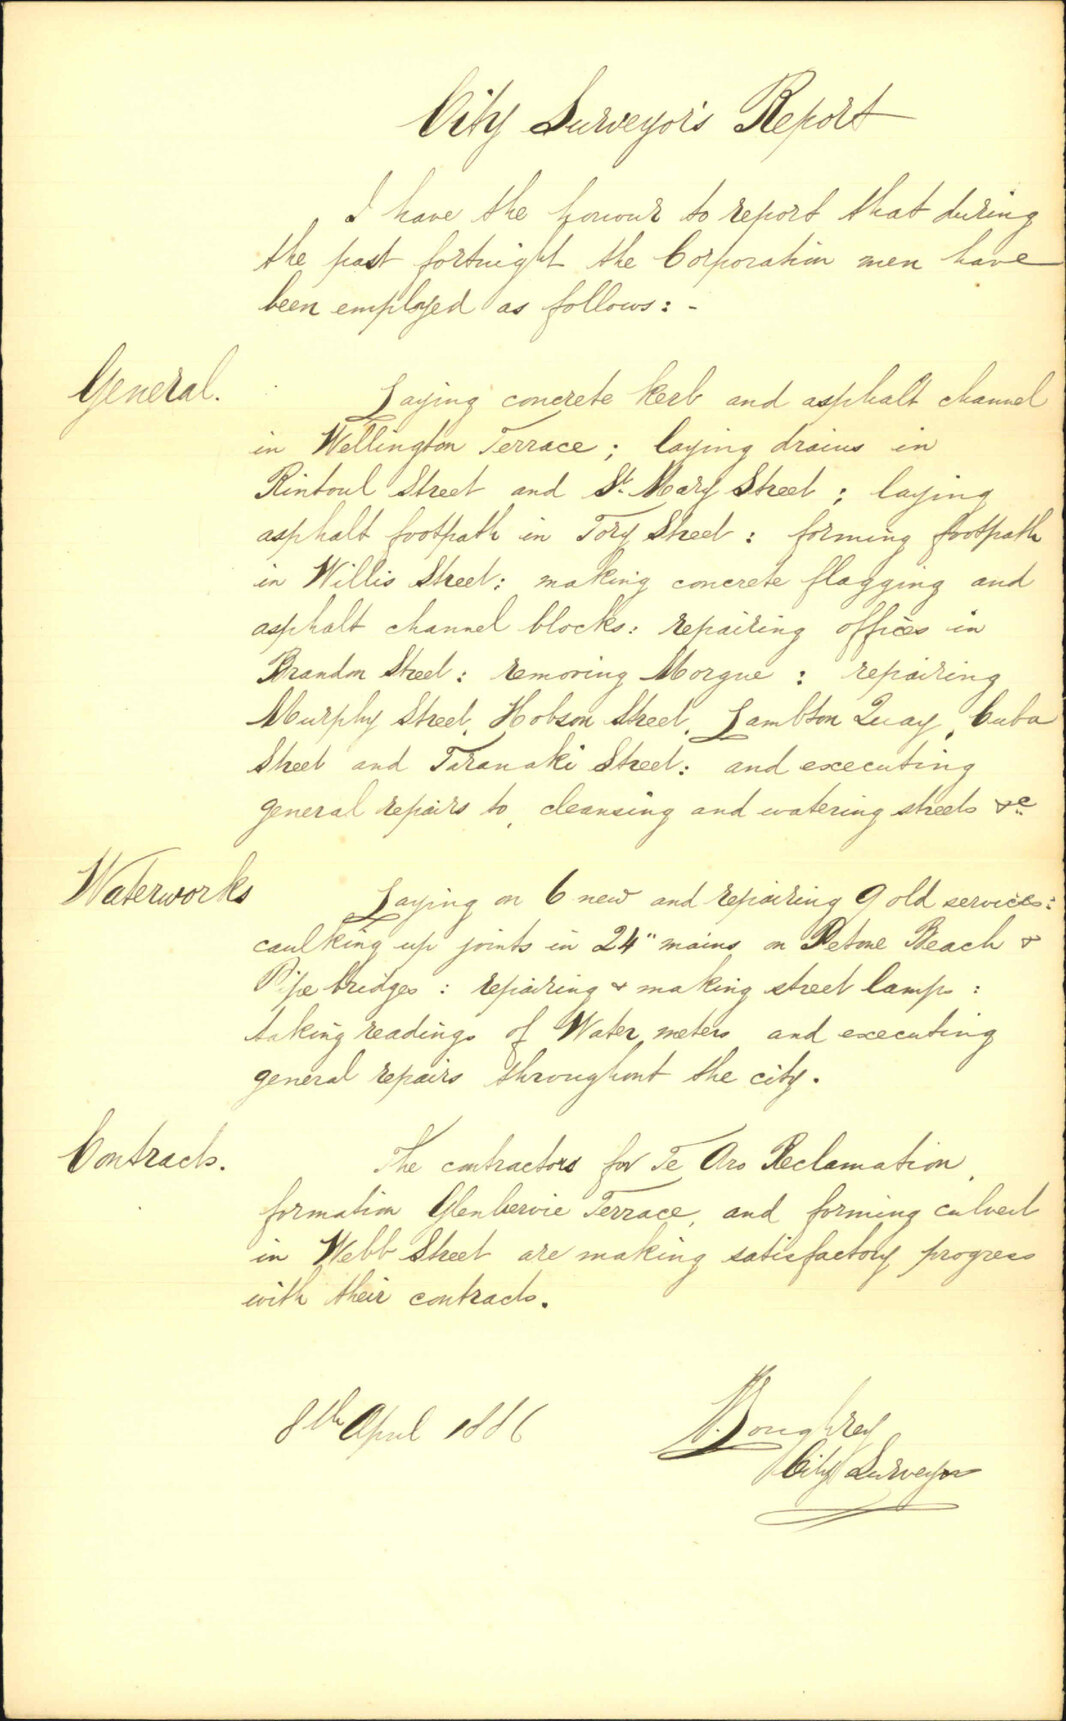 City Surveyor's Report
I have the honour to report that during
the past fortnight the Corporation men have
been employed as follows: -
General.
Laying concrete kerb and asphalt channel
in Wellington Terrace ; laying drains in
Rintoul Street and St. Mary Street ; laying
asphalt footpath in Tory Street : forming footpath
in Willis Street : making concrete flagging and
asphalt channel blocks : repairing offices in
Brandon Street : removing Morgue : repairing
Murphy Street, Hobson Street, Lambton Quay, Cuba
Street and Taranaki Street : and executing
general repairs to, cleansing and watering streets &c
Waterworks
Laying on 6 new and repairing 9 old services :
caulking up joints in 24" mains on Petone Beach &
Pipe bridges : repairing & making street lamps :
taking readings of Water meters and executing
general repairs throughout the city.
Contracts.
The contractors for Te Aro Reclamation,
formation Glenbervie Terrace, and forming culvert
in Webb Street are making satisfactory progress
with their contracts.
8th April 1886
Loughrey
City Surveyor